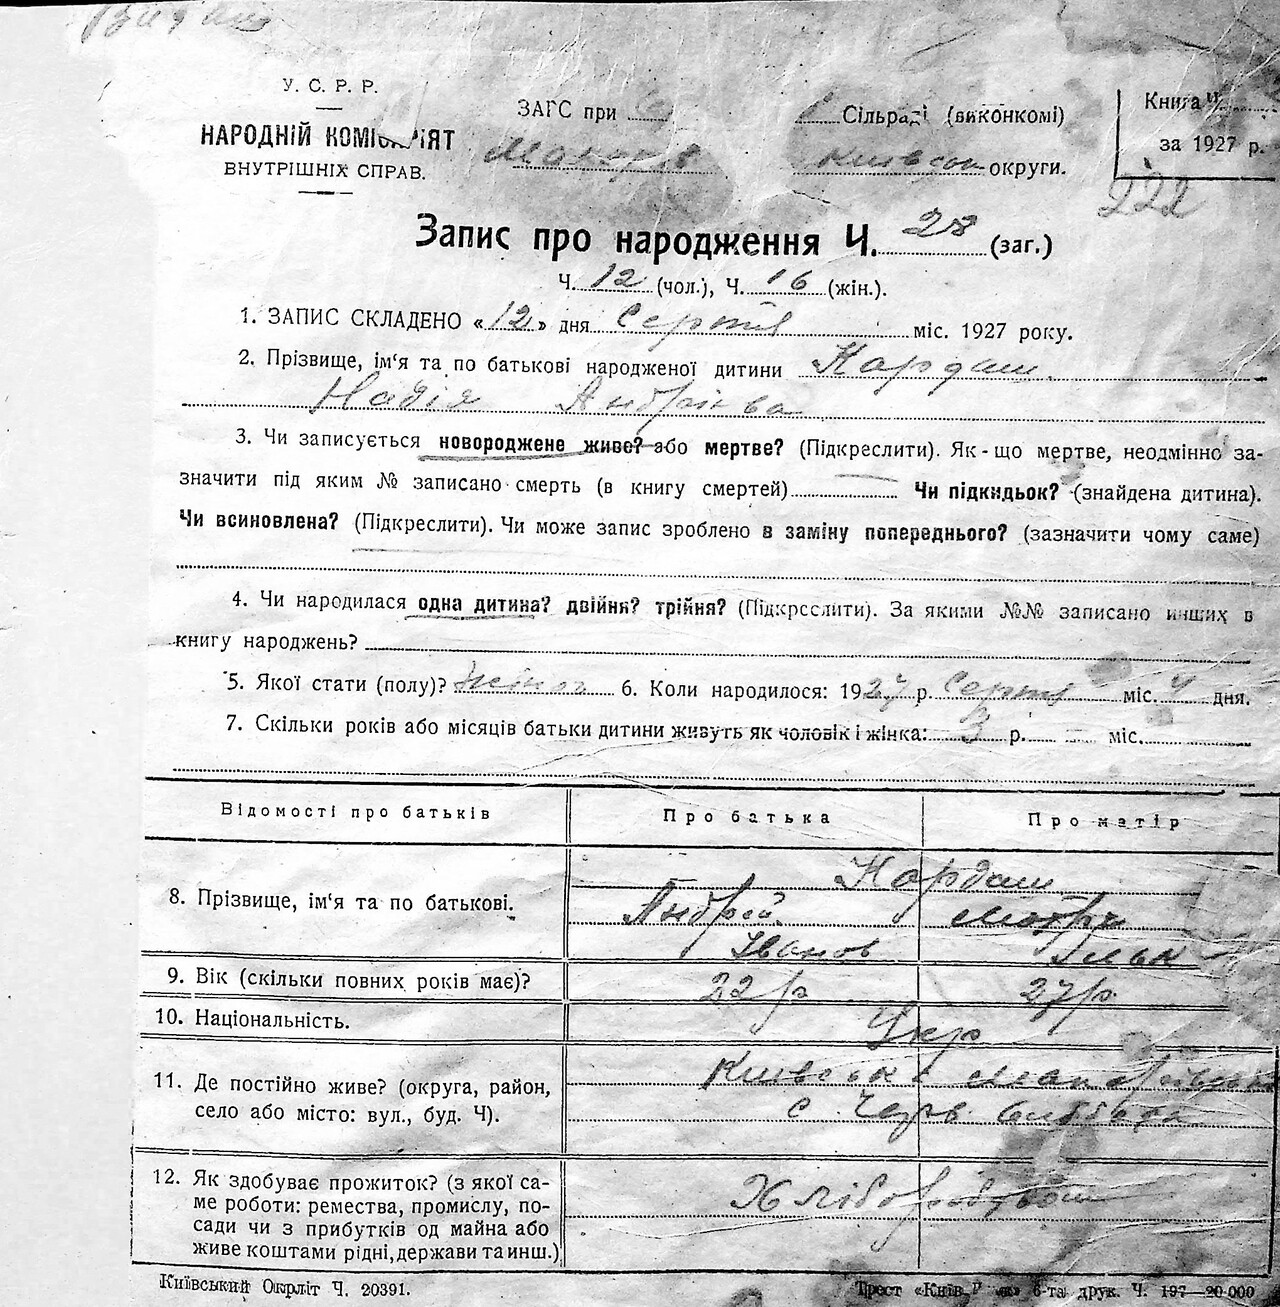 У. С. Р. Р.
НАРОДНІЙ КОМІСАРІЯТ
ВНУТРІШНІХ СПРАВ.
ЗАГС при
Сільраді (виконкомі)
Київськ округи.
Книга Ч.
за 1927 р.
222
Запис про народження Ч. 28 (заг.)
Ч. 12 (чол.), Ч. 16 (жін.).
1. ЗАПИС СКЛАДЕНО «12» дня Серпня міс. 1927 року.
2. Прізвище, ім'я та по батькові народженої дитини Кардаш
Надія Андріївна
3. Чи записується новороджене живе? або мертве? (Підкреслити). Як-що мертве, неодмінно за-
значити під яким № записано смерть (в книгу смертей) Чи підкидьок? (знайдена дитина).
Чи всиновлена? (Підкреслити). Чи може запис зроблено в заміну попереднього? (зазначити чому саме)
4. Чи народилася одна дитина? двійня? трійня? (Підкреслити). За якими №№ записано инших в
книгу народжень?
5. Якої стати (полу)? жіноч 6. Коли народилося: 1927 р. Серпня міс. 4 дня.
7. Скільки років або місяців батьки дитини живуть як чоловік і жінка: 3 р. — міс.
Відомості про батьків Про батька Про матір
8. Прізвище, ім'я та по батькові. Кардаш
Андрій Мотря
Іванов Ільк
9. Вік (скільки повних років має)? 22 р 27 р.
10. Національність. Укр
11. Де постійно живе? (округа, район,
село або місто: вул., буд. Ч).
Київськ Макарівськ
с. Черв. Слобода
12. Як здобуває прожиток? (з якої са-
ме роботи: ремества, промислу, по-
сади чи з прибутків од майна або
живе коштами рідні, держави та инш.)
Хліборобством
Київський Окрліт Ч. 20391.
Трест «Київ-Друк» 6-та друк. Ч. 197—20.000